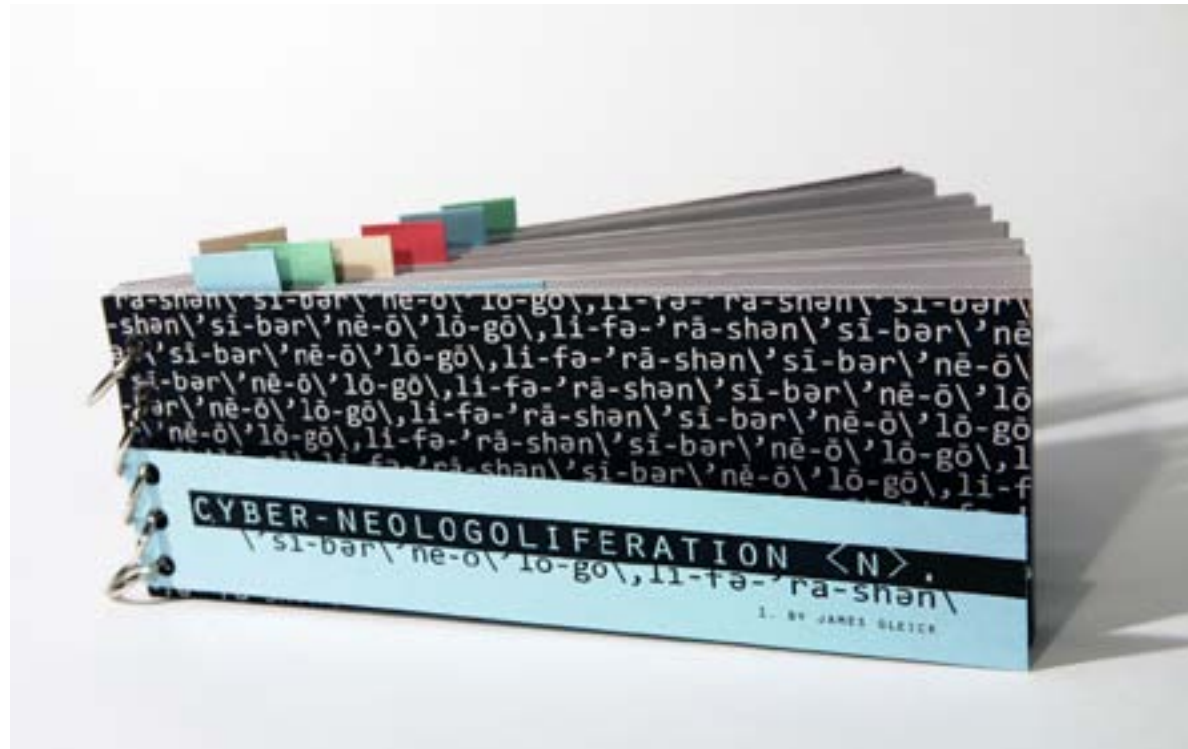 ra-shən\'sī-bər\'nē-ō\'lō-gō\,li-fə-'rā-shən\'sī-bər\
-shən\'sī-bər\'nē-ō\'lō-gō\,li-fə-'rā-shən\'sī-bər\'nē
ə \'sī-bər\'nē-ō\'lō-gō\,li-fə-'rā-shən\'sī-bər\'nē-ō\
sī-bər\'nē-ō\'lō-gō\,li-fə-'rā-shən\'sī-bər\'nē-ō\'lō
ər\'nē-ō\'lō-gō\,li-fə-'rā-shən\'sī-bər\'nē-ō\'lō-gō
'nē-ō\'lō-gō\,li-fə-'rā-shən\'sī-bər\'nē-ō\'lō-gō\,l
gō\,li-fə-'rā-shən\'sī-bər\'nē-ō\'lō-gō\,li-f
CYBER-NEOLOGOLIFERATION <N>.
\'sī-bər\'nē-ō\'lō-gō\,li-fə-'rā-shən\
1. BY JAMES GLEICK